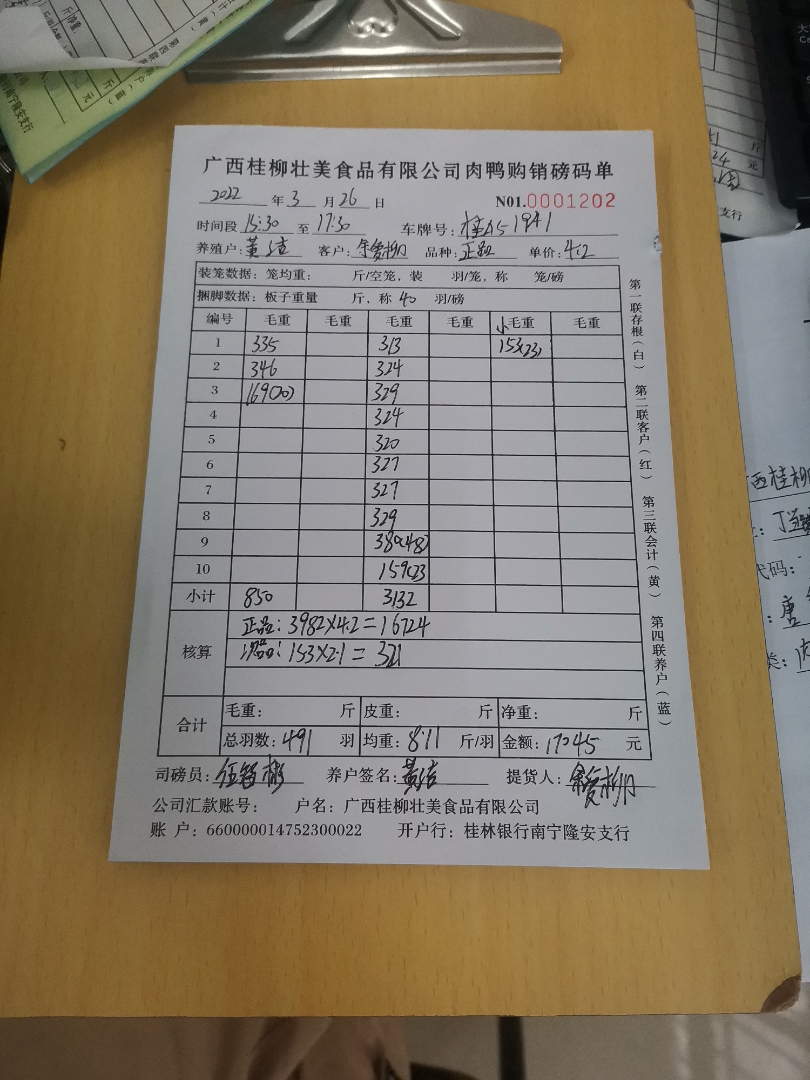 广西桂柳壮美食品有限公司肉鸭购销磅码单
2022 年 3 月 26 日 N01.0001202
时间段 15:30 至 17:30 车牌号: 桂A51941
养殖户: 黄洁 客户: 品种: 正品 单价: 4.2
装笼数据: 笼均重: 斤/空笼, 装 羽/笼, 称 笼/磅
捆脚数据: 板子重量 斤, 称 40 羽/磅
编号 毛重 毛重 毛重 毛重 小毛重 毛重
1 335 313 153(23)
2 346 324
3 169(20) 329
4 324
5 320
6 327
7 327
8 329
9 380(48)
10 159(23
小计 850 3132
核算
正品: 3982×4.2=16724
153×2.1= 321
合计
毛重: 斤 皮重: 斤 净重: 斤
总羽数: 491 羽 均重: 8.11 斤/羽 金额: 17045 元
司磅员: 养户签名: 黄洁 提货人:
公司汇款账号: 户名: 广西桂柳壮美食品有限公司
账 户: 660000014752300022 开户行: 桂林银行南宁隆安支行
第一联存根(白) 第二联客户(红) 第三联会计(黄) 第四联养户(蓝)
西桂柳
代码:
唐